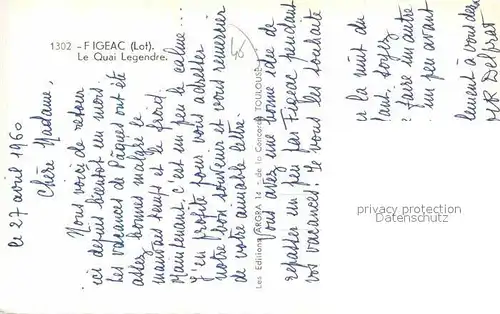 1302 - FIGEAC (Lot).
Le Quai Legendre.
le 27 avril 1960
Chère Madame,
Nous voici de retour
ici depuis bientôt un mois.
Les vacances de Pâques ont été
assez bonnes malgré le
mauvais temps et le froid.
Maintenant c'est un peu le calme...
J'en profite pour vous adresser
notre bon souvenir et vous remercier
de votre aimable lettre.
Les Editions ARGRA 14 - de la Concorde TOULOUSE
Vous avez une bonne idée de
repasser un peu par Figeac pendant
vos vacances! Je vous les souhaite
la nuit du
soyez
faire un autre
un peu avant
privacy protection
Datenschutz
à vous deux
Delprat